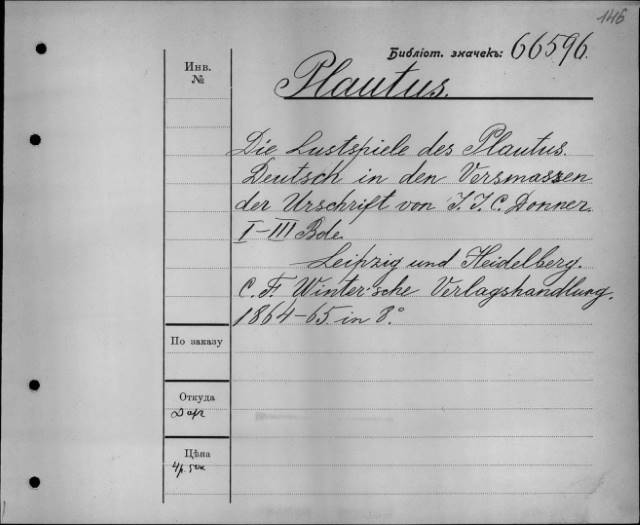 146
Библіот. значекъ: 66596
Инв.
№
Plautus.
Die Lustspiele des Plautus.
Deutsch in den Versmassen
der Urschrift von J. J. C. Donner.
I–III Bde.
Leipzig und Heidelberg.
C. F. Winter'sche Verlagshandlung.
1864–65. in 8°.
По заказу
Откуда
Дар
Цѣна
4р. 50к